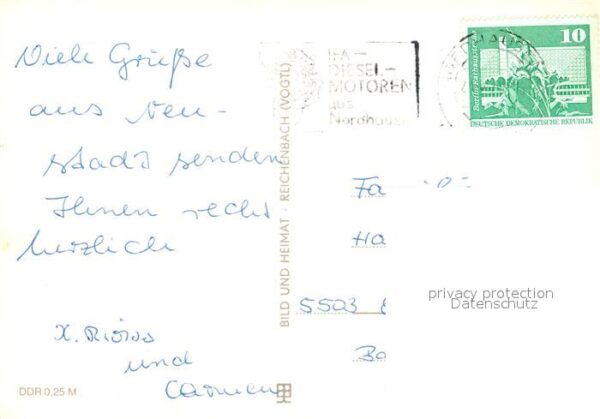 Viele Grüße
aus Neu-
stadt senden
Ihnen recht
herzlich
und
Carmen
DDR 0,25 M
BILD UND HEIMAT · REICHENBACH (VOGTL)
IFA-
DIESEL-
MOTOREN
aus
Nordhausen
10
Berlin, Rathausstraße
DEUTSCHE DEMOKRATISCHE REPUBLIK
Fa
Ha
5503
privacy protection
Datenschutz